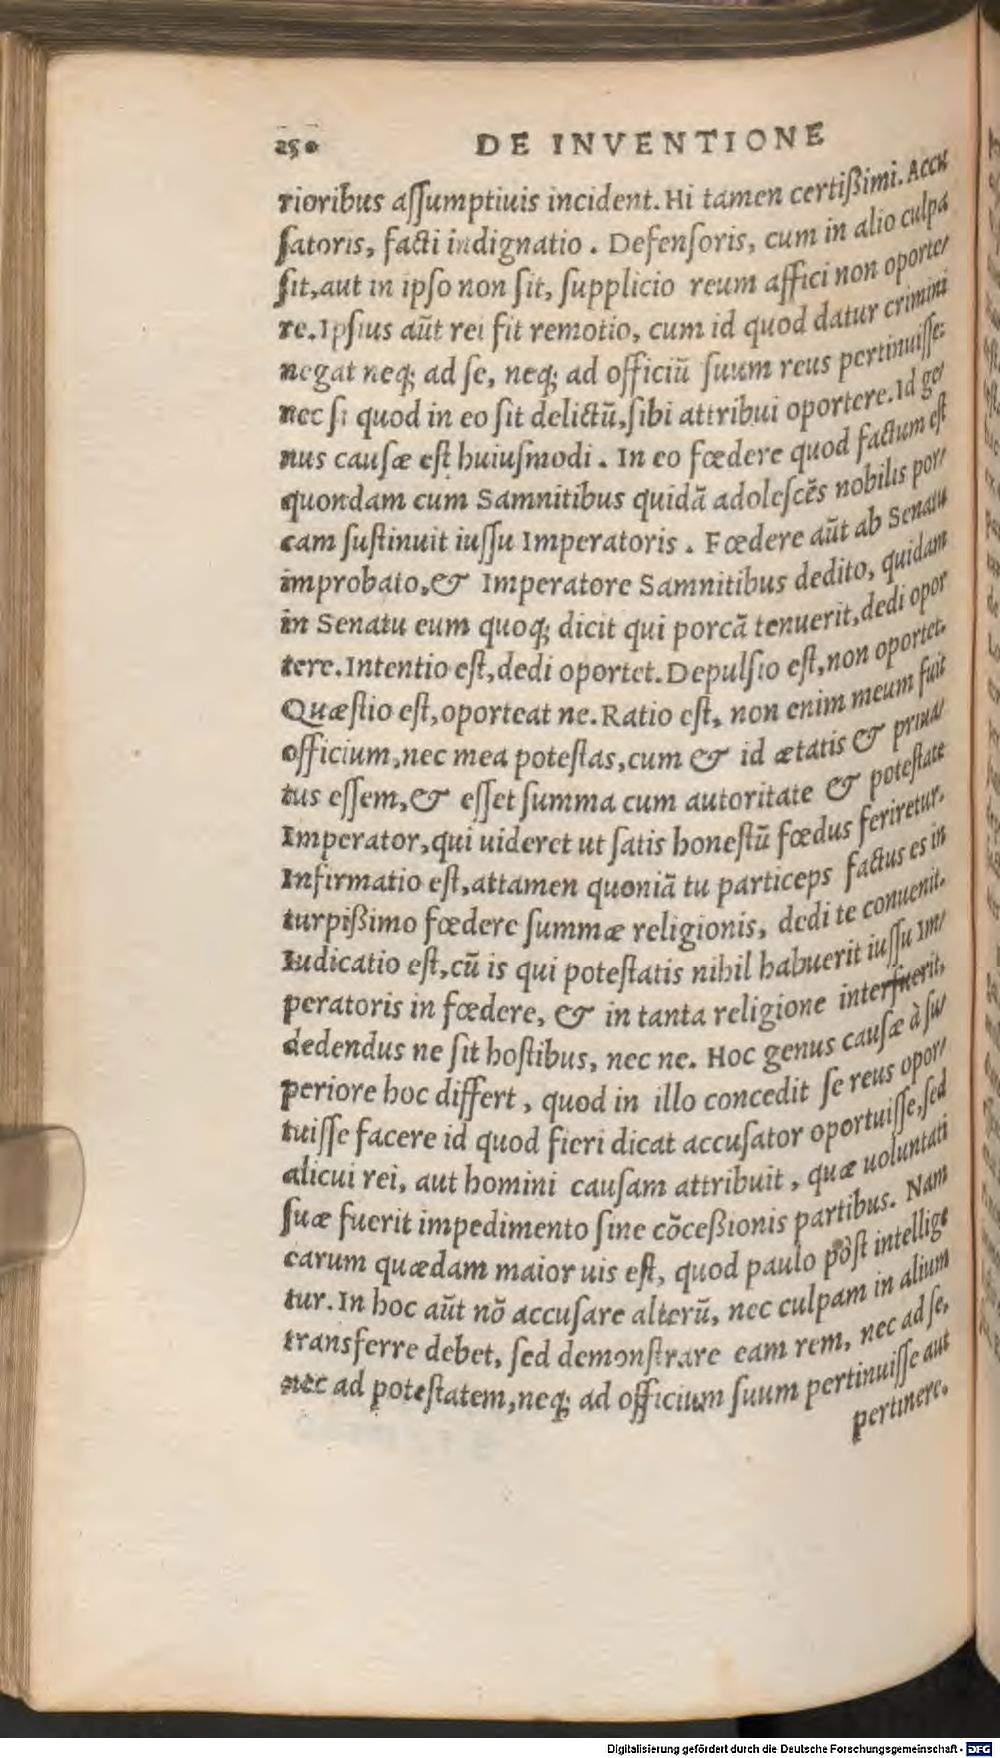 250 DE INVENTIONE
rioribus aſſumptiuis incident. Hi tamen certißimi. Accu
ſatoris, facti indignatio. Defenſoris, cum in alio culpa
ſit, aut in ipſo non ſit, ſupplicio reum affici non oporte/
re. Ipſius aūt rei fit remotio, cum id quod datur crimini
negat neq; ad ſe, neq; ad officiū ſuum reus pertinuiſſe:
nec ſi quod in eo ſit delictū, ſibi attribui oportere. Id ge/
nus cauſæ eſt huiuſmodi. In eo fœdere quod factum eſt
quondam cum Samnitibus quidā adoleſcēs nobilis por/
cam ſuſtinuit iuſſu Imperatoris. Fœdere aūt ab Senatu
improbato, & Imperatore Samnitibus dedito, quidam
in Senatu eum quoq; dicit qui porcā tenuerit, dedi opor
tere. Intentio eſt, dedi oportet. Depulſio eſt, non oportet.
Quæſtio eſt, oporteat ne. Ratio eſt, non enim meum fuit
officium, nec mea poteſtas, cum & id ætatis & priua/
tus eſſem, & eſſet ſumma cum autoritate & poteſtate
Imperator, qui uideret ut ſatis honeſtū fœdus feriretur.
Infirmatio eſt, attamen quoniā tu particeps factus es in
turpißimo fœdere ſummæ religionis, dedi te conuenit.
Iudicatio eſt, cū is qui poteſtatis nihil habuerit iuſſu Im/
peratoris in fœdere, & in tanta religione interfuerit,
dedendus ne ſit hoſtibus, nec ne. Hoc genus cauſæ à ſu/
periore hoc differt, quod in illo concedit ſe reus opor/
tuiſſe facere id quod fieri dicat accuſator oportuiſſe, ſed
alicui rei, aut homini cauſam attribuit, quæ uoluntati
ſuæ fuerit impedimento ſine cōceßionis partibus. Nam
earum quædam maior uis eſt, quod paulo pòſt intellige
tur. In hoc aūt nō accuſare alterū, nec culpam in alium
transferre debet, ſed demonſtrare eam rem, nec ad ſe,
nec ad poteſtatem, neq; ad officium ſuum pertinuiſſe aut
pertinere.
Digitalisierung gefördert durch die Deutsche Forschungsgemeinschaft - DFG